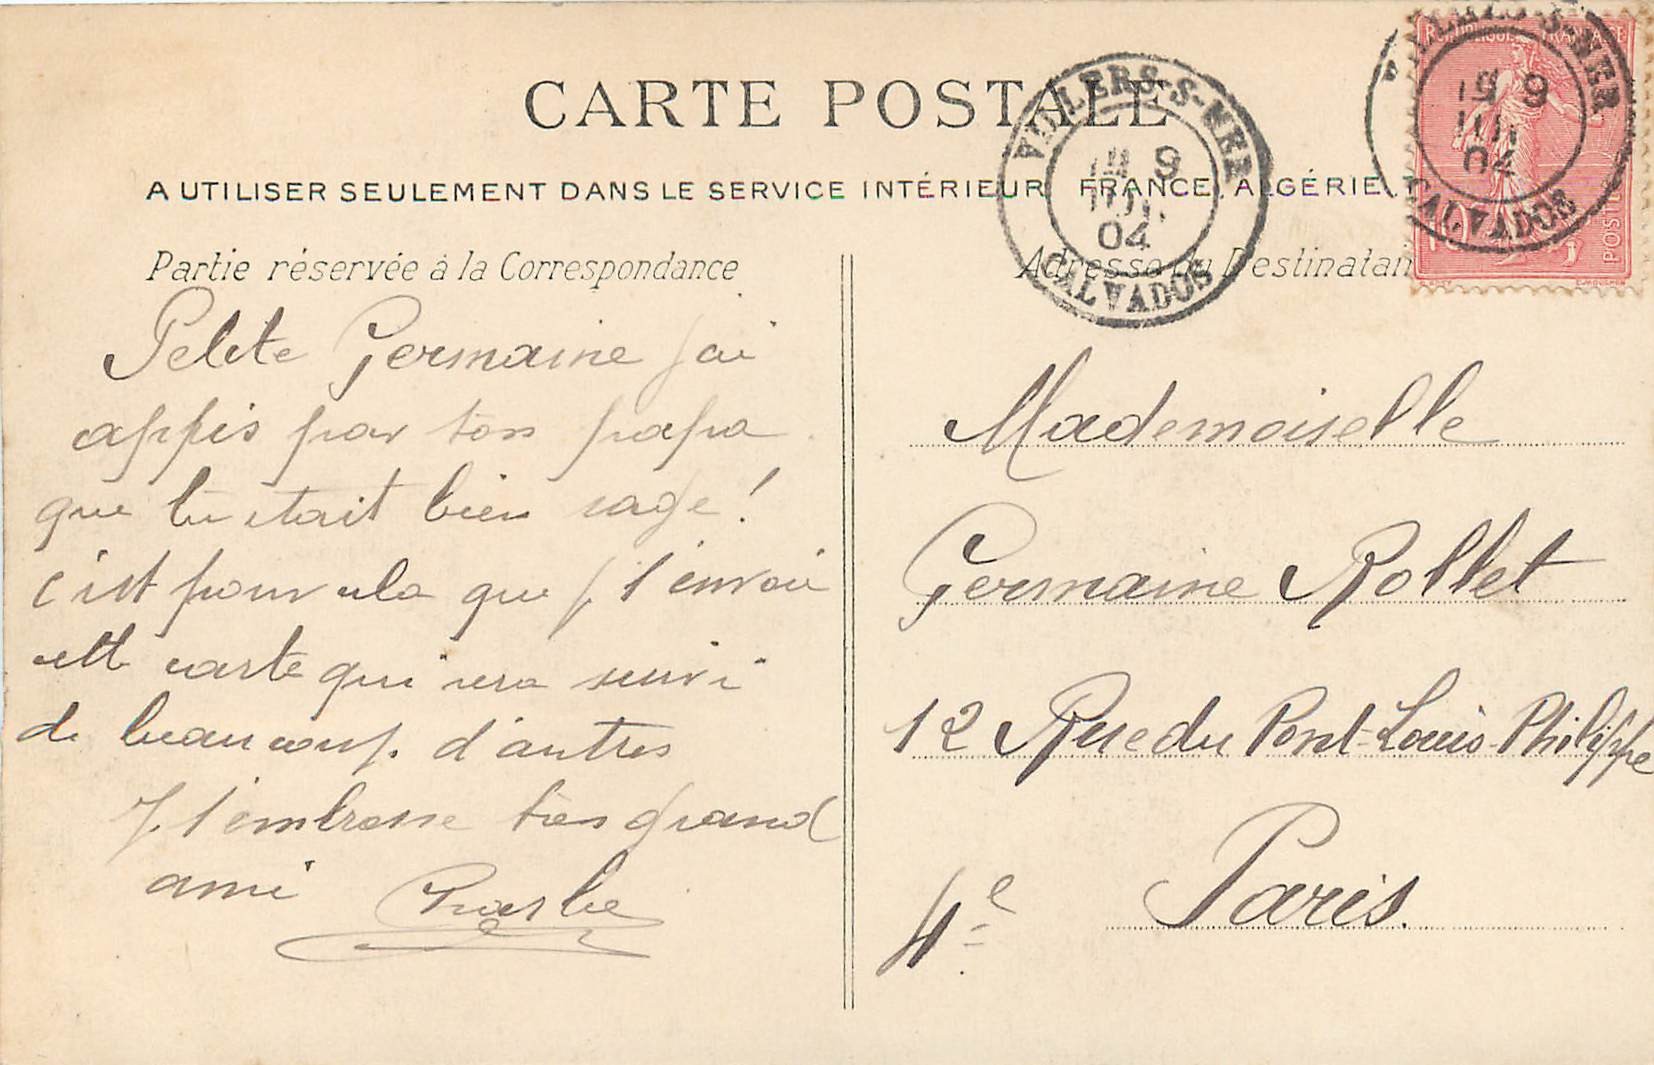 CARTE POSTALE
A UTILISER SEULEMENT DANS LE SERVICE INTÉRIEUR FRANCE, ALGÉRIE
Partie réservée à la Correspondance
Petite Germaine j'ai
appis par ton papa
que tu était bien sage!
c'est pour cela que j. t'envoie
cette carte qui sera suivi
de beaucoup. d'autres
J. t'embrasse ton grand
ami
Adresse du Destinatair
Mademoiselle
Germaine Rollet
12 Rue du Pont-Louis-Philippe
Paris.
4e
VILLERS-S-MER
9
JUIL
04
CALVADOS
RÉPUBLIQUE FRANÇAISE
10
POSTES
VILLERS-S-MER
04
CALVADOS